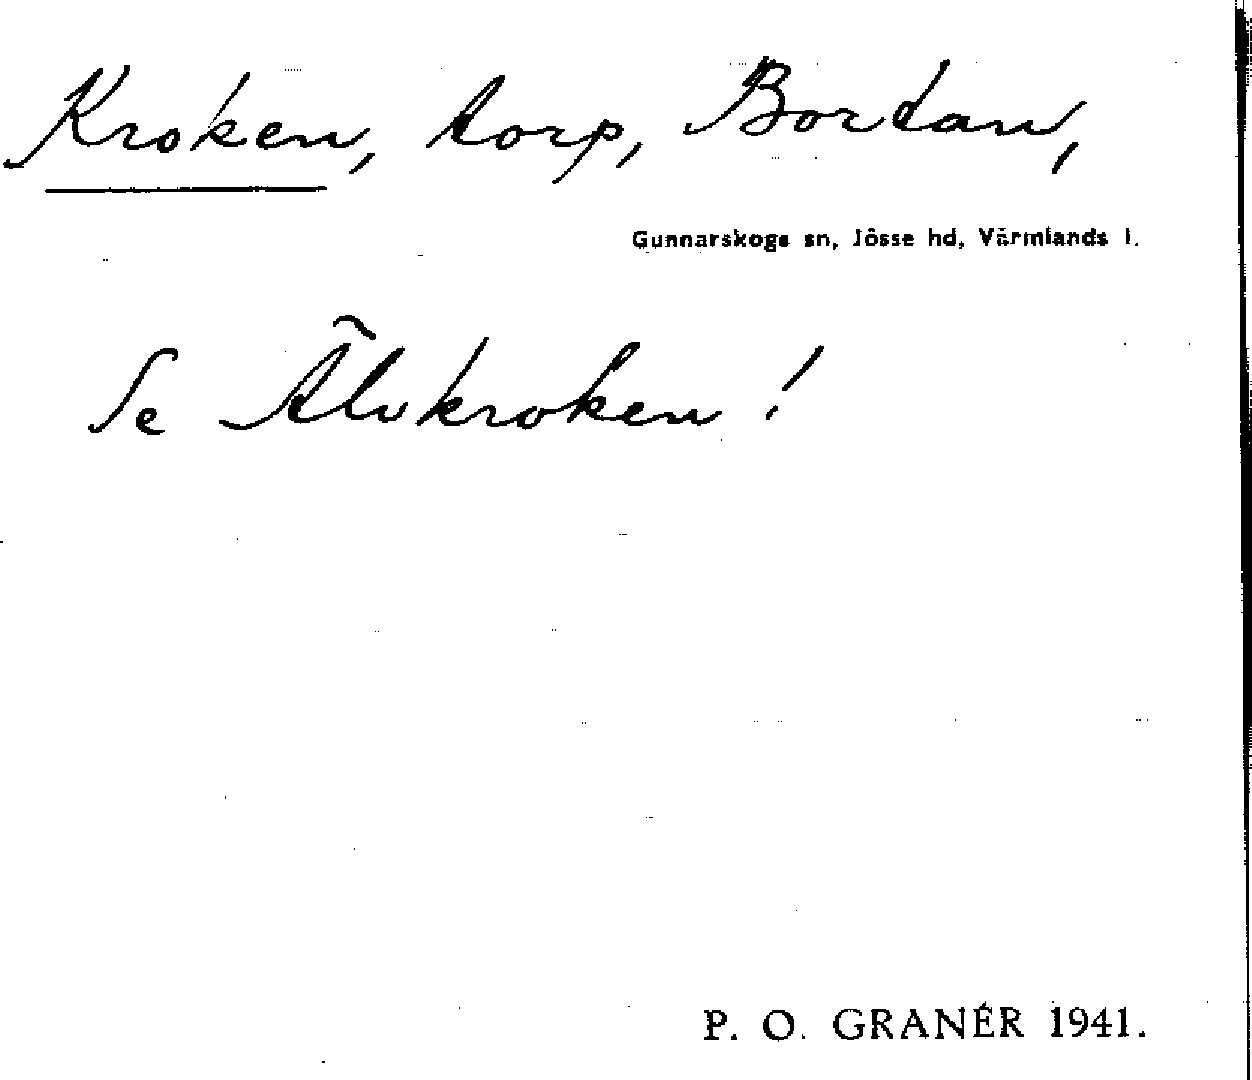 Kroken, torp, Bortan,
Gunnarskogs sn, Jösse hd, Värmlands l.
Se Älvkroken!
P. O. GRANÉR 1941.